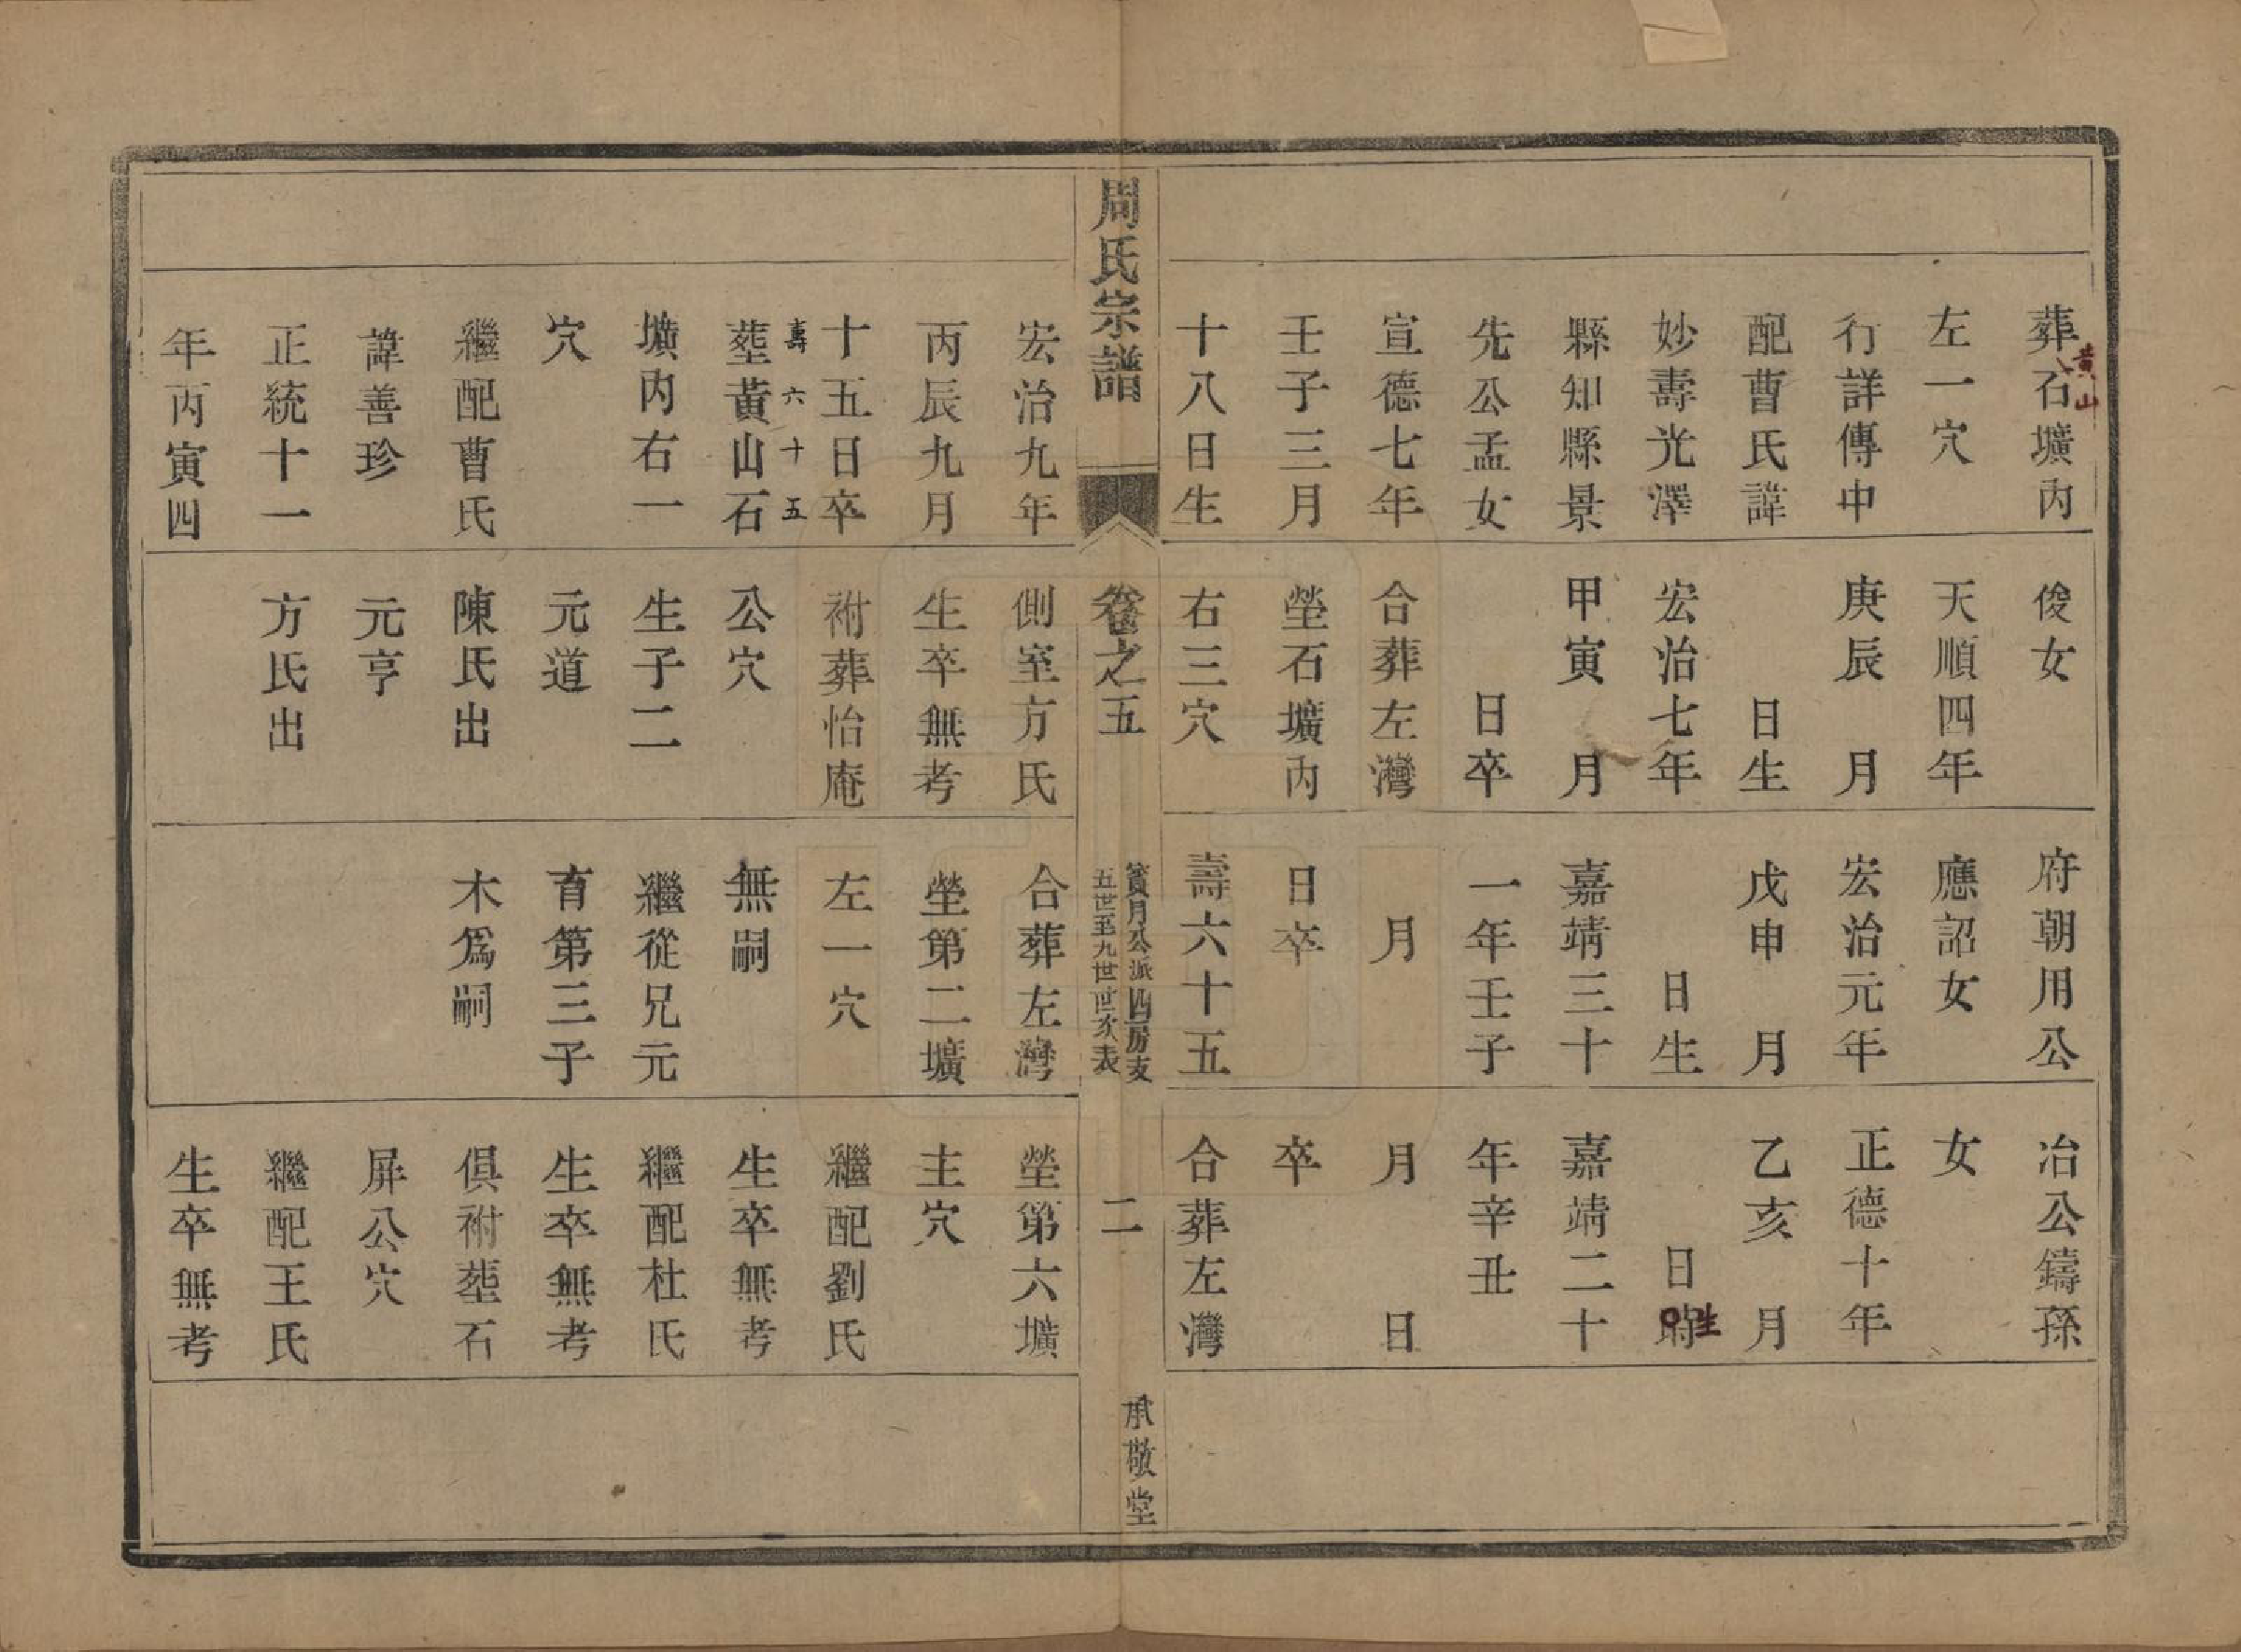 葬石壙內
黃山
左一穴
行詳傳中
配曹氏諱
妙壽光澤
縣知縣景
先公孟女
宣德七年
壬子三月
十八日生
俊女
天順四年
庚辰　月
日生
宏治七年
甲寅　月
日卒
合葬左灣
塋石壙內
右三穴
府朝用公
應詔女
宏治元年
戊申　月
日生
嘉靖三十
一年壬子
月
日卒
壽六十五
冶公鑄孫
女
正德十年
乙亥　月
日時
生
嘉靖二十
年辛丑
月　日
卒
合葬左灣
周氏宗譜
卷之五
篔月公派四房支
五世至九世世次表
二
承敬堂
宏治九年
丙辰九月
十五日卒
壽六十五
塟黃山石
壙內右一
穴
繼配曹氏
諱善珍
正統十一
年丙寅四
側室方氏
生卒無考
祔葬怡庵
公穴
生子二
元道
陳氏出
元亨
方氏出
合葬左灣
塋第二壙
左一穴
無嗣
繼從兄元
育第三子
木爲嗣
塋第六壙
主穴
繼配劉氏
生卒無考
繼配杜氏
生卒無考
俱祔塟石
屏公穴
繼配王氏
生卒無考